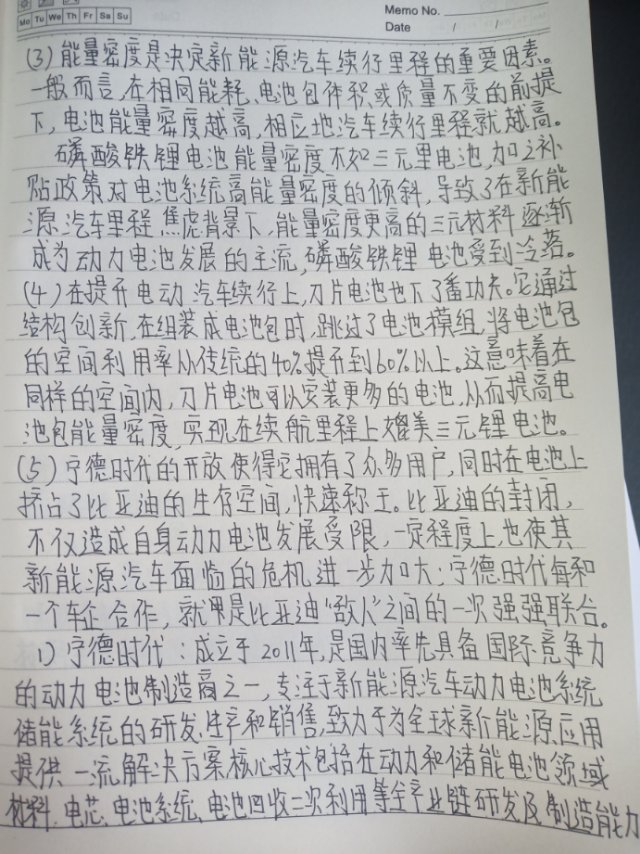 Mo Tu We Th Fr Sa Su
Memo No.
Date / /
(3)能量密度是决定新能源汽车续行里程的重要因素。
一般而言,在相同能耗、电池包体积或质量不变的前提
下,电池能量密度越高,相应地汽车续行里程就越高。
磷酸铁锂电池能量密度不如三元里电池,加之补
贴政策对电池系统高能量密度的倾斜,导致了在新能
源汽车里程焦虑背景下,能量密度更高的三元材料逐渐
成为动力电池发展的主流,磷酸铁锂电池受到冷落。
(4)在提升电动汽车续行上,刀片电池也下了番功夫。它通过
结构创新,在组装成电池包时,跳过了电池模组,将电池包
的空间利用率从传统的40%提升到60%以上。这意味着在
同样的空间内,刀片电池可以安装更多的电池,从而提高电
池包能量密度,实现在续航里程上媲美三元锂电池。
(5)宁德时代的开放使得它拥有了众多用户,同时在电池上
挤占了比亚迪的生存空间,快速称王。比亚迪的封闭,
不仅造成自身动力电池发展受限,一定程度上也使其
新能源汽车面临的危机进一步加大;宁德时代每和
一个车企合作,就是比亚迪“敌人”之间的一次强强联合。
1)宁德时代:成立于2011年,是国内率先具备国际竞争力
的动力电池制造商之一,专注于新能源汽车动力电池系统
储能系统的研发、生产和销售,致力于为全球新能源应用
提供一流解决方案,核心技术包括在动力和储能电池领域
材料、电芯、电池系统、电池回收二次利用等全产业链研发及制造能力